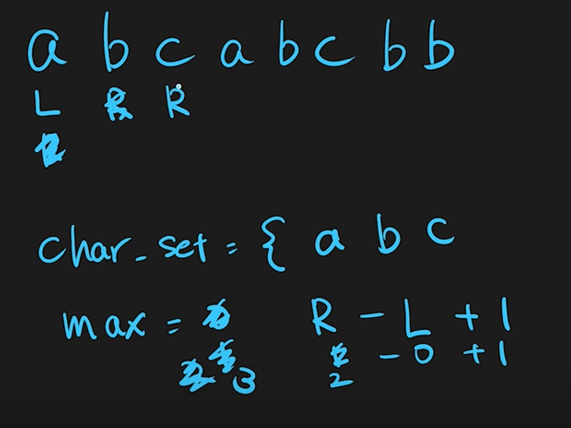 a b c a b c b b
L R R
R
char_set = { a b c
max = 0 R - L + 1
2 1 3 2 - 0 + 1